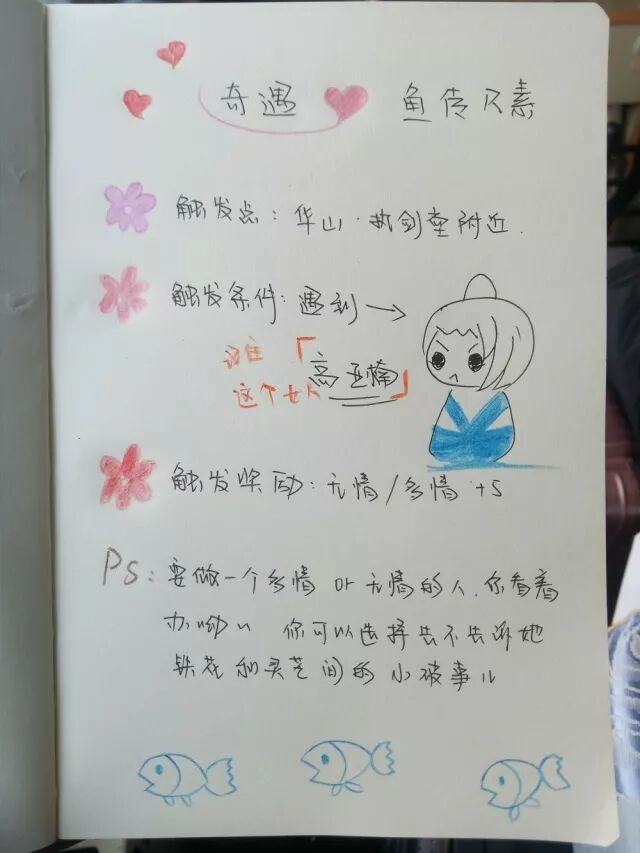 奇遇 鱼传尺素
触发点：华山·执剑堂附近.
触发条件：遇到→
谁「高亚楠」
这个女人
触发奖励：无情/多情+5
Ps：要做一个多情or无情的人.你看着
办呦~ 你可以选择告不告诉她
铁花和灵芝间的小破事儿